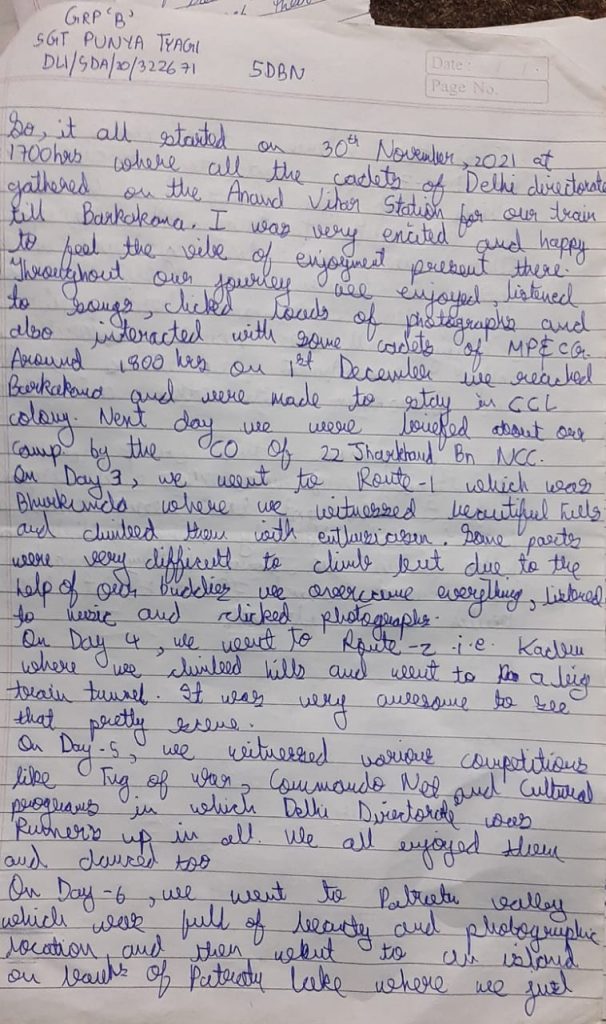 GRP 'B'
SGT PUNYA TYAGI
DLI/SDA/20/322671
5DBN
Date:
Page No.
So, it all started on 30th November, 2021 at
1700hrs where all the cadets of Delhi directorate
gathered on the Anand Vihar Station for our train
till Barkakana. I was very excited and happy
to feel the vibe of enjoyment present there.
Throughout our journey we enjoyed, listened
to songs, clicked loads of photographs and
also interacted with some cadets of MP&CG.
Around 1800 hrs on 1st December we reached
Barkakana and were made to stay in CCL
colony. Next day we were briefed about our
camp by the CO of 22 Jharkhand Bn NCC.
On Day 3, we went to Route-1 which was
Bhurkunda where we witnessed beautiful hills
and climbed them with enthusiasm. Some parts
were very difficult to climb but due to the
help of our buddies we overcame everything, listened
to music and clicked photographs.
On Day 4, we went to Route-2 i.e.
where we climbed hills and went to a big
train tunnel. It was very awesome to see
that pretty scene.
On Day-5, we witnessed various competitions
like Tug of war, Commando Net and Cultural
programs in which Delhi Directorate was
Runners up in all. We all enjoyed them
and danced too
On Day-6, we went to Patratu valley
which was full of beauty and photographic
location and then went to an island
on banks of Patratu lake where we just